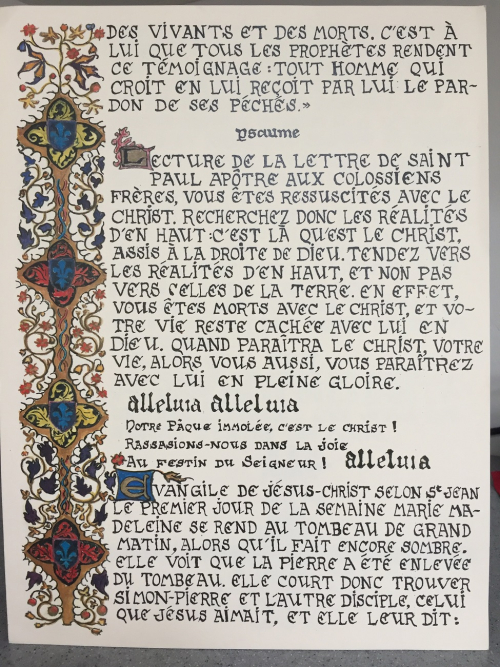 DES VIVANTS ET DES MORTS. C'EST À
LUI QUE TOUS LES PROPHÈTES RENDENT
CE TÉMOIGNAGE : TOUT HOMME QUI
CROIT EN LUI REÇOIT PAR LUI LE PAR-
DON DE SES PÉCHÉS.»
psaume
LECTURE DE LA LETTRE DE SAINT
PAUL APÔTRE AUX COLOSSIENS
FRÈRES, VOUS ÊTES RESSUSCITÉS AVEC LE
CHRIST. RECHERCHEZ DONC LES RÉALITÉS
D'EN HAUT : C'EST LÀ QU'EST LE CHRIST,
ASSIS À LA DROITE DE DIEU. TENDEZ VERS
LES RÉALITÉS D'EN HAUT, ET NON PAS
VERS CELLES DE LA TERRE. EN EFFET,
VOUS ÊTES MORTS AVEC LE CHRIST, ET VO-
TRE VIE RESTE CACHÉE AVEC LUI EN
DIEU. QUAND PARAÎTRA LE CHRIST, VOTRE
VIE, ALORS VOUS AUSSI, VOUS PARAÎTREZ
AVEC LUI EN PLEINE GLOIRE.
alleluia alleluia
NOTRE PÂQUE IMMOLÉE, C'EST LE CHRIST !
RASSASIONS-NOUS DANS LA JOIE
AU FESTIN DU SEIGNEUR ! alleluia
EVANGILE DE JÉSUS-CHRIST SELON St JEAN
LE PREMIER JOUR DE LA SEMAINE MARIE MA-
DELEINE SE REND AU TOMBEAU DE GRAND
MATIN, ALORS QU'IL FAIT ENCORE SOMBRE.
ELLE VOIT QUE LA PIERRE A ÉTÉ ENLEVÉE
DU TOMBEAU. ELLE COURT DONC TROUVER
SIMON-PIERRE ET L'AUTRE DISCIPLE, CELUI
QUE JÉSUS AIMAIT, ET ELLE LEUR DIT :